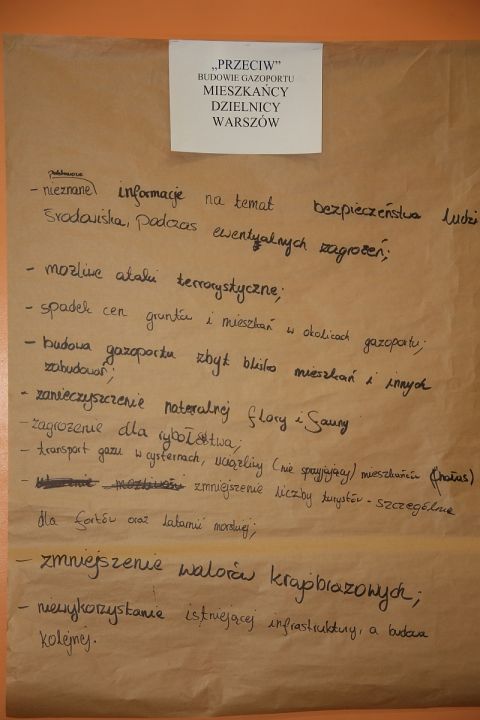 „PRZECIW”
BUDOWIE GAZOPORTU
MIESZKAŃCY
DZIELNICY
WARSZÓW
podstawowe
- nieznane informacje na temat bezpieczeństwa ludzi
środowiska, podczas ewentualnych zagrożeń;
- możliwe ataki terrorystyczne;
- spadek cen gruntów i mieszkań w okolicach gazoportu;
- budowa gazoportu zbyt blisko mieszkań i innych
zabudowań;
- zanieczyszczenie naturalnej flory i fauny
- zagrożenie dla rybołóstwa;
- transport gazu w cysternach, uciążliwy (nie sprzyjający) mieszkańców (hałas)
- zmniejszenie liczby turystów - szczególnie
dla fortów oraz latarnii morskiej;
- zmniejszenie walorów krajobrazowych;
- niewykorzystanie istniejącej infrastruktury, a budowa
kolejnej.